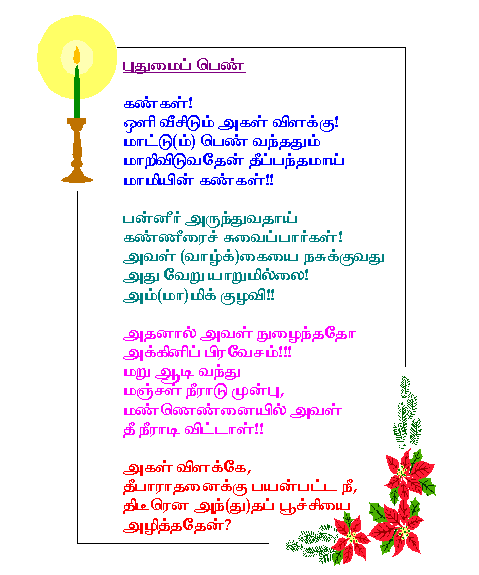 புதுமைப் பெண்
கண்கள்!
ஒளி வீசிடும் அகள் விளக்கு!
மாட்டு(ம்) பெண் வந்ததும்
மாறிவிடுவதேன் தீப்பந்தமாய்
மாமியின் கண்கள்!!
பன்னீர் அருந்துவதாய்
கண்ணீரைச் சுவைப்பார்கள்!
அவள் (வாழ்க்)கையை நசுக்குவது
அது வேறு யாறுமில்லை!
அம்(மா)மிக் குழவி!!
அதனால் அவள் நுழைந்ததோ
அக்கினிப் பிரவேசம்!!!
மறு ஆடி வந்து
மஞ்சள் நீராடு முன்பு,
மண்ணெண்ணையில் அவள்
தீ நீராடி விட்டாள்!!
அகள் விளக்கே,
தீபாராதனைக்கு பயன்பட்ட நீ,
திடீரென அந்(து)தப் பூச்சியை
அழித்ததேன்?